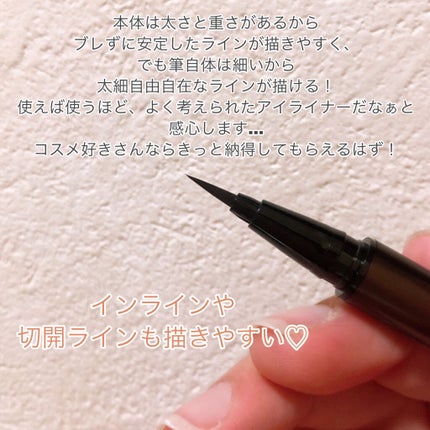 本体は太さと重さがあるから
ブレずに安定したラインが描きやすく、
でも筆自体は細いから
太細自由自在なラインが描ける！
使えば使うほど、よく考えられたアイライナーだなぁと
感心します...
コスメ好きさんならきっと納得してもらえるはず！
インラインや
切開ラインも描きやすい♡